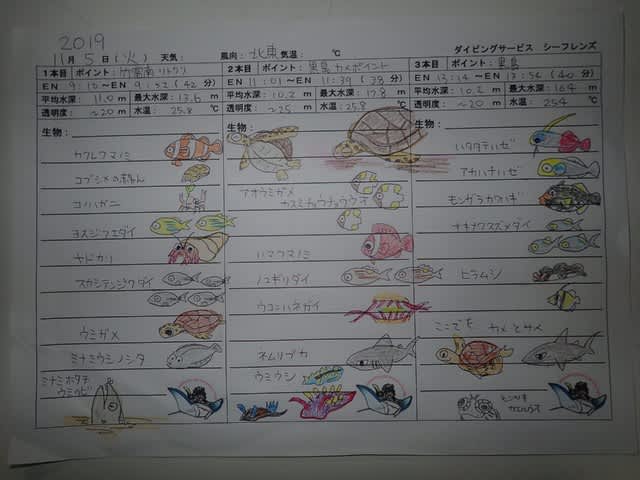 2019
11月 5日(火) 天気: 風向: 北東 気温: ℃ ダイビングサービス シーフレンズ
1本目 ポイント: 竹富南
EN 9:10～EN 9:52 (42分)
平均水深: 11.0m 最大水深: 13.6m
透明度: ~20m 水温: 25.8℃
生物:
カクレクマノミ
コブシメの赤ちゃん
コノハガニ
ヨスジフエダイ
ヤドカリ
スカシテンジクダイ
ウミガメ
ミナミウシノシタ
ミナミホタテ
ウミヘビ
2本目 ポイント: 黒島カメポイント
EN 11:01～EN 11:39 (38分)
平均水深: 10.2m 最大水深: 17.8m
透明度: ~25m 水温: 25.8℃
生物:
アオウミガメ
カスミチョウチョウウオ
ハマクマノミ
ノコギリダイ
ウコンハネガイ
ネムリブカ
ウミウシ
3本目 ポイント: 黒島
EN 13:14～EN 13:54 (40分)
平均水深: 10.2m 最大水深: 16.4m
透明度: ~20m 水温: 25.4℃
生物:
ハタタテハゼ
アカハチハゼ
モンガラカワハギ
オキナワスズメダイ
ヒラムシ
ここでも カメとサメ